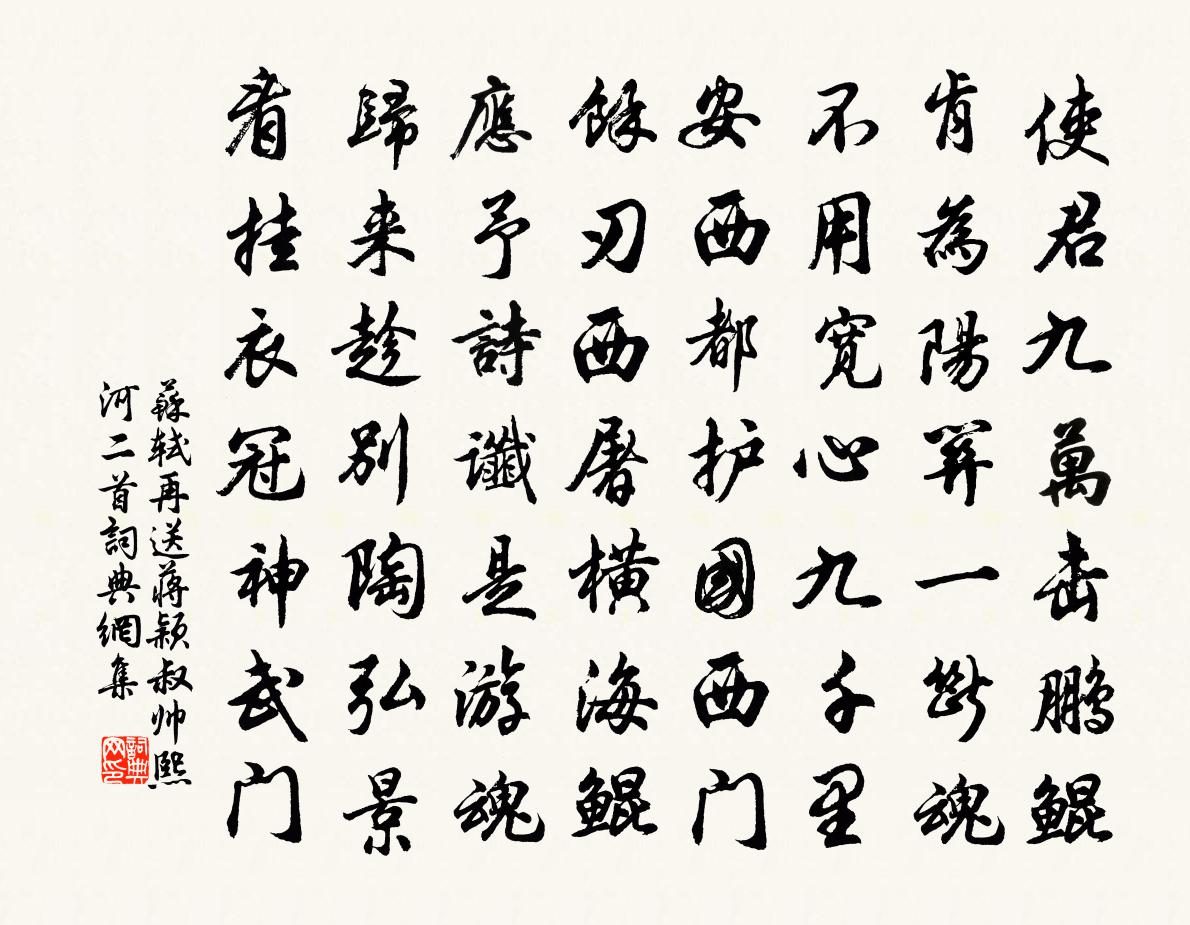 使君九萬击鹏鲲
肯為陽関一断魂
不用宽心九千里
安西都护國西门
餘刃西屠横海鲲
應予詩谶是游魂
歸来趁別陶弘景
看挂衣冠神武门
蘇轼再送蒋颖叔帅熙
河二首詞典網集
詞典
网印